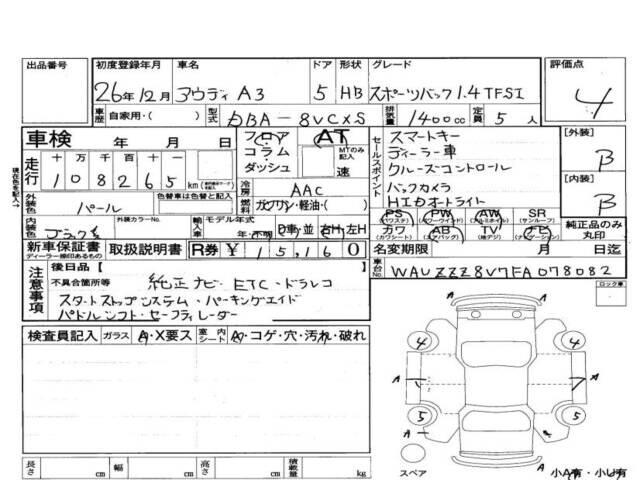 出品番号 初度登録年月 車名 ドア 形状 グレード 評価点
26年12月 アウディ A3 5 HB スポーツバック1.4TFSI 4
車歴 自家用・( ) 型式 DBA-8VCXS 排気量 1400cc 定員 5人
車検 年 月 日
フロア コラム・ダッシュ
AT MTのみ記入 速
セールスポイント
スマートキー
ディーラー車
クルーズコントロール
バックカメラ
HIDオートライト
[外装] B
[内装] B
現在色を記入→
走行 十 万 千 百 十 一
108265 km
外装色 パール 色替車は色替と記入
冷房 AAC
燃料 ガソリン・軽油・( )
内装色 ブラック系 外装カラーNo. 輸入車 モデル年式 年・不明 D車・並 右H・左H
PS (パワステ) PW (パワーウインド) AW (アルミホイル) SR (サンルーフ)
カワ (カワシート) AB (エアバッグ) TV (地デジ) ナビ (ナビゲーション)
純正品のみ丸印
新車保証書 ディーラー捺印あるもの 取扱説明書 R券 ¥ 15,160
名変期限 月 日迄
車台No. WAUZZZ8V7FA078082
注意事項
後日品[ ]
不具合箇所等 純正ナビ・ETC・ドラレコ
スタートストップシステム・パーキングエイド
パドルシフト・セーフティレーダー
ロック車
検査員記入 ガラス A・X要ス 室内シート A・コゲ・穴・汚れ・破れ
4 4
A A
5 5
A A
スペア 小A有・小U有
長さ cm 幅 cm 高さ cm 積載量 kg